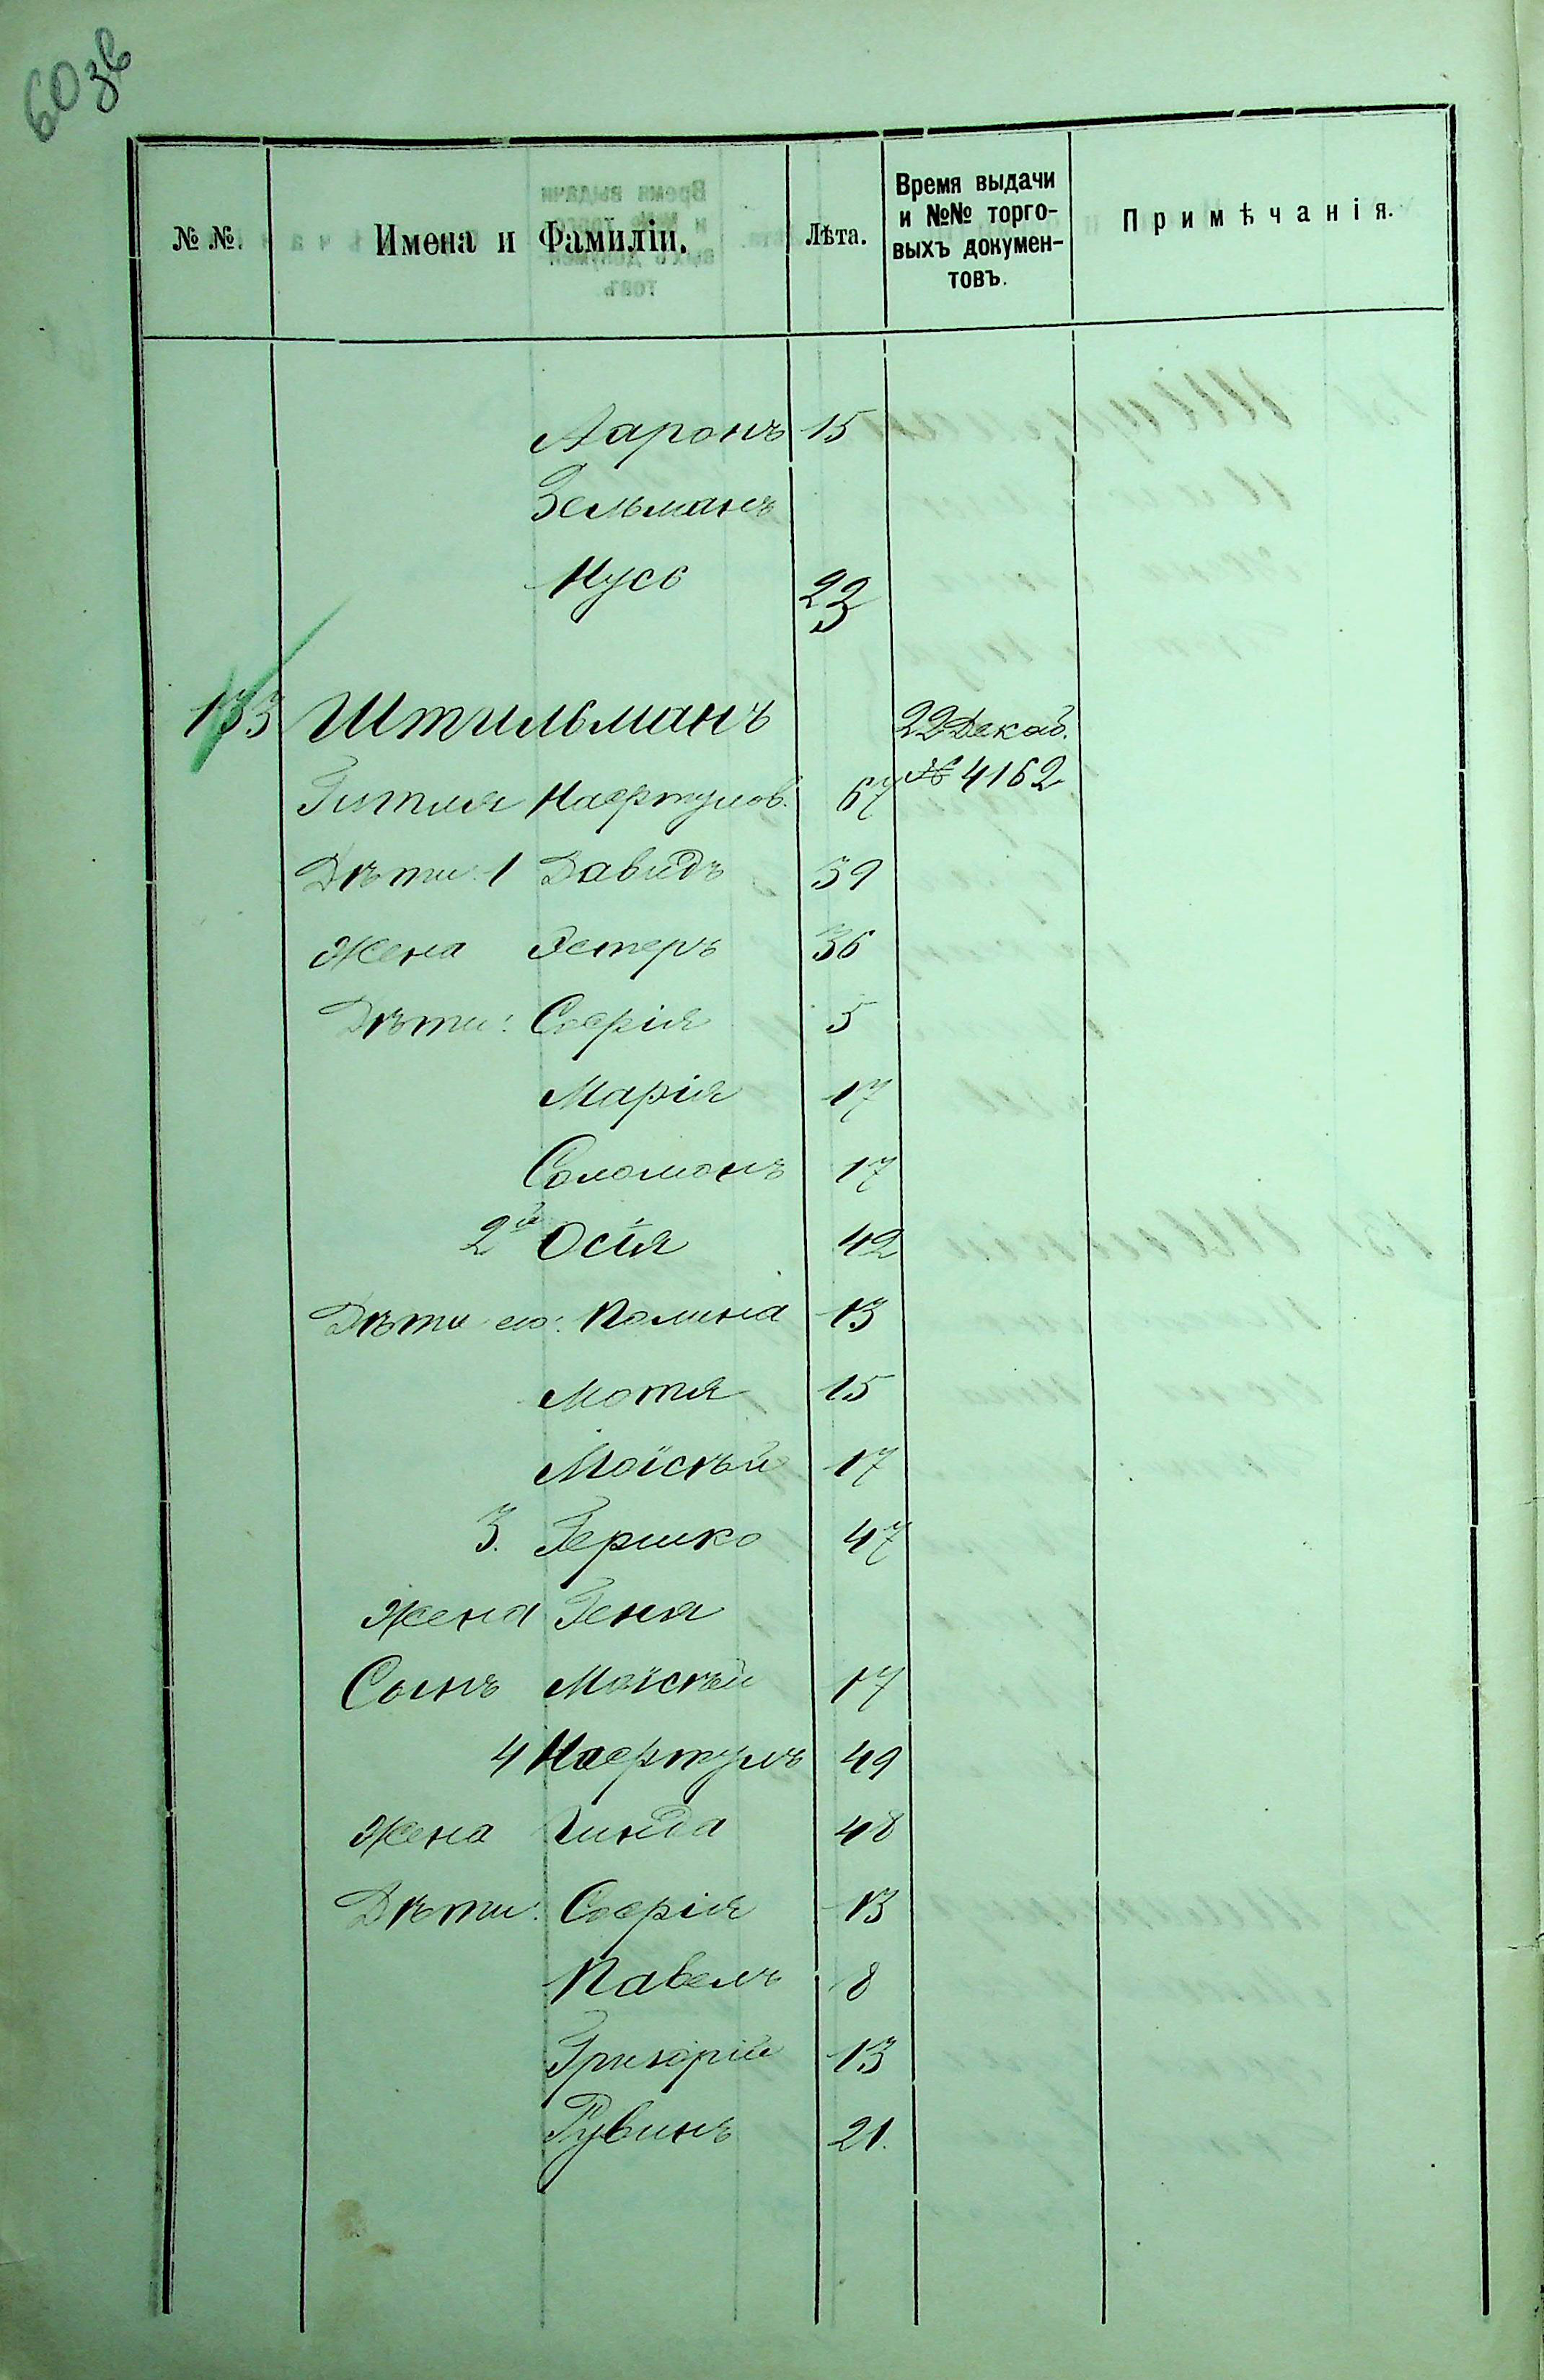 60 зв
№ №.
Имена и Фамиліи.
Лѣта.
Время выдачи
и №№ торго-
выхъ докумен-
товъ.
Примѣчанія.
Ааронъ 15
Зельманъ
Нусс 23
133 Штильманъ 22 Декаб.
Гитля Нафтулов. 67 № 4162
Дѣти: 1 Давидъ 39
Жена Эстеръ 36
Дѣти: Софія 5
Марія 17
Соломонъ 17
2й Осія 42
Дѣти его: Полина 13
Мотя 15
Моисѣй 17
3. Гершко 47
Жена Геня
Сынъ Моисѣй 17
4 Нафтулъ 49
Жена Линда 48
Дѣти: Софія 13
Павелъ 8
Григорій 13
Рувинъ 21.